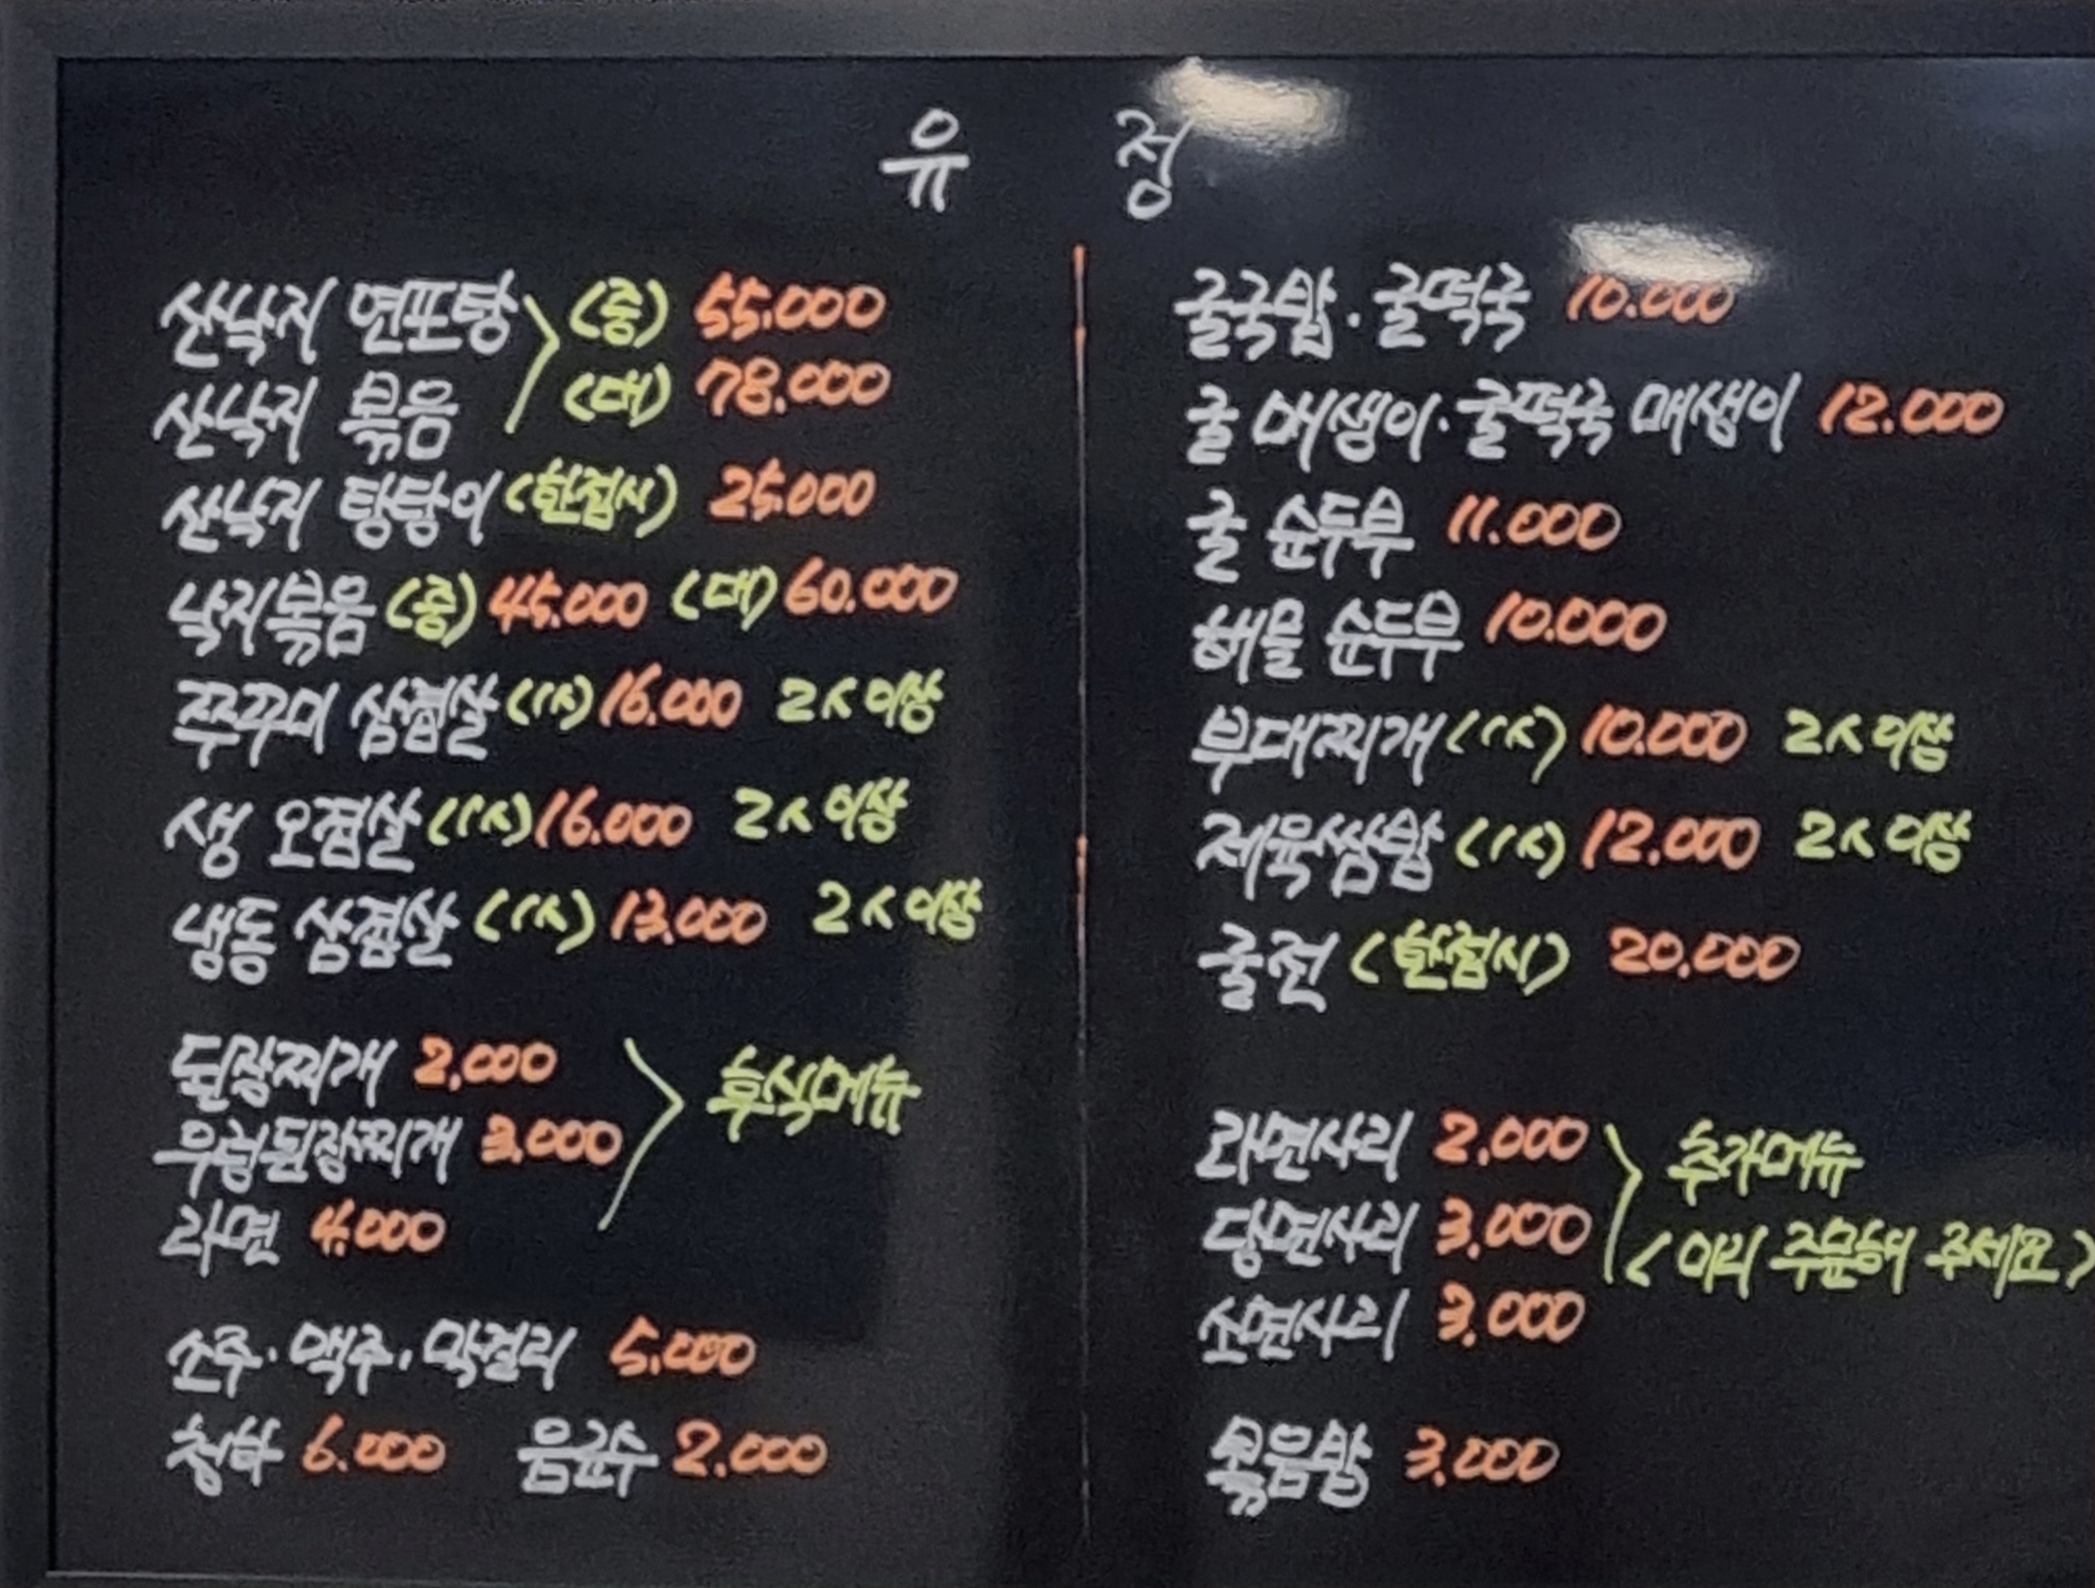 유 정
산낙지 연포탕 (중) 55.000
산낙지 볶음 (대) 78.000
산낙지 탕탕이 (한접시) 25.000
낙지볶음 (중) 45.000 (대) 60.000
쭈꾸미 삼겹살 (1人) 16.000 2人 이상
생 오겹살 (1人) 16.000 2人 이상
냉동 삼겹살 (1人) 13.000 2人 이상
된장찌개 2,000
우렁된장찌개 3.000
라면 4.000
후식메뉴
소주. 맥주. 막걸리 5.000
청하 6.000 음료수 2.000
굴국밥. 굴떡국 10.000
굴 매생이. 굴떡국 매생이 12.000
굴 순두부 11.000
해물 순두부 10.000
부대찌개 (1人) 10.000 2人 이상
제육쌈밥 (1人) 12.000 2人 이상
굴전 (한접시) 20.000
라면사리 2.000
당면사리 3.000
소면사리 3.000
추가메뉴
(미리 주문해 주세요)
볶음밥 3.000